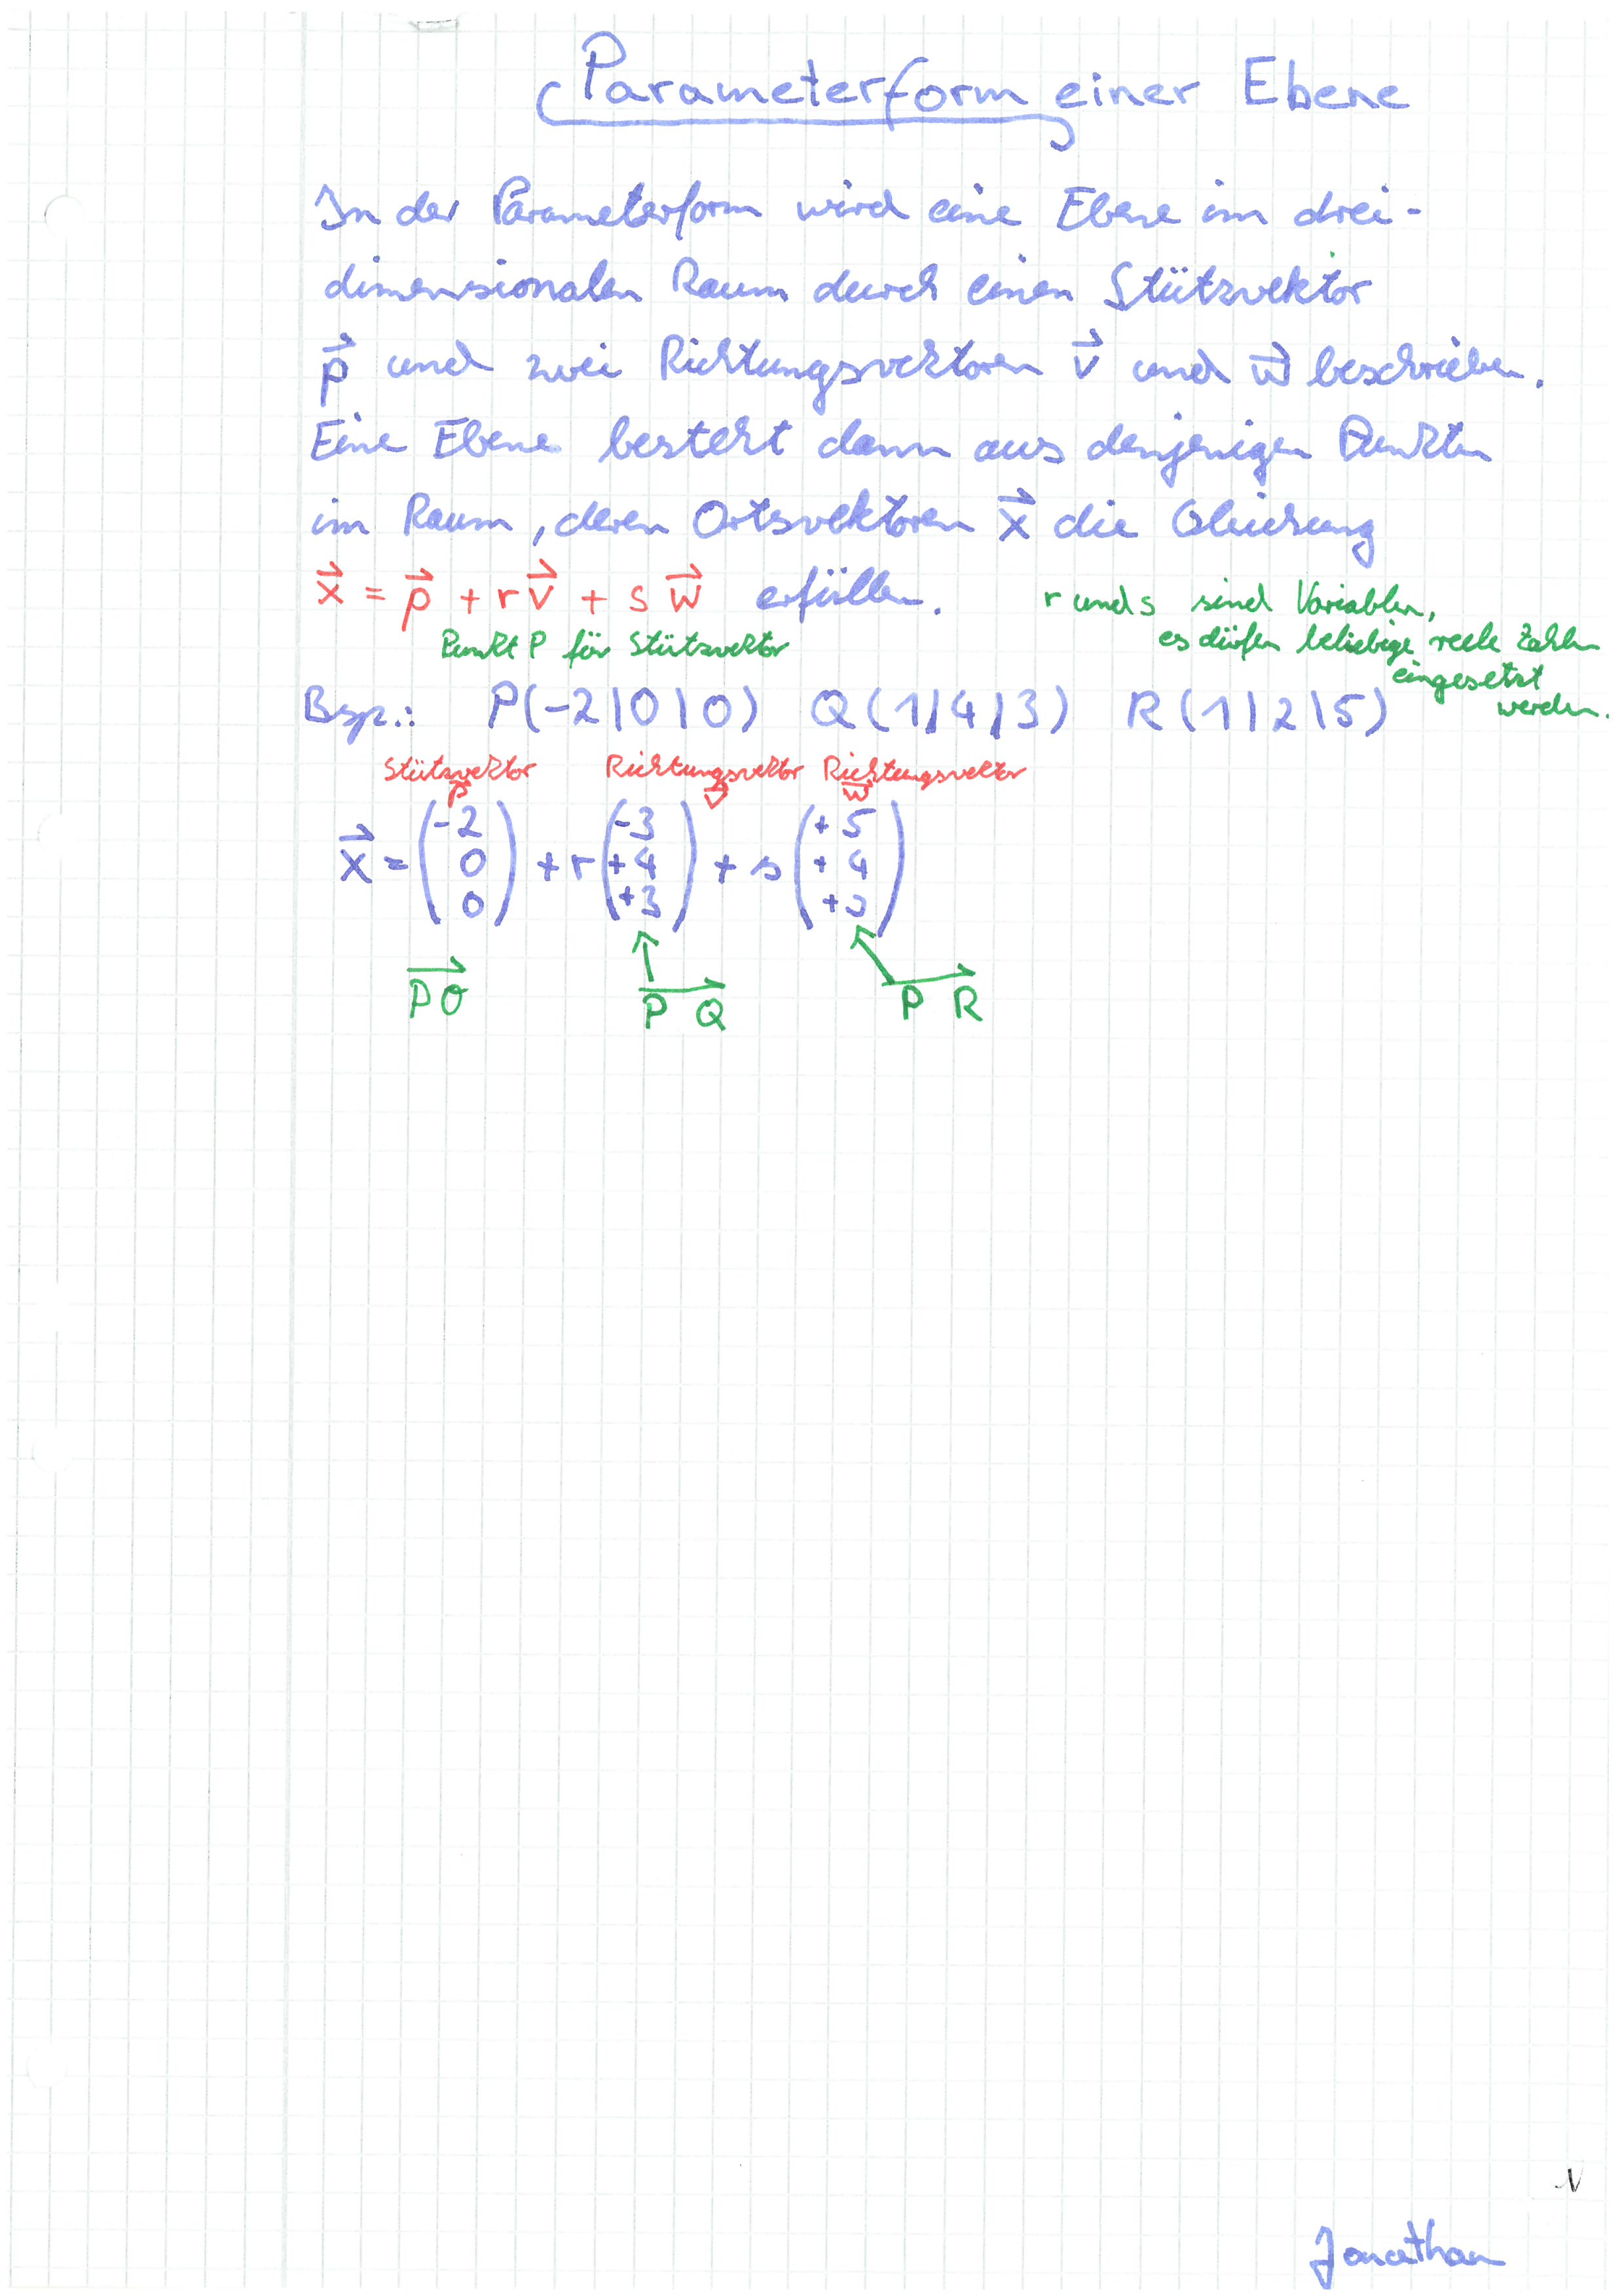 Parameterform einer Ebene
In der Parameterform wird eine Ebene im drei-
dimensionalen Raum durch einen Stützvektor
p⃗ und zwei Richtungsvektoren v⃗ und w⃗ beschrieben.
Eine Ebene besteht dann aus denjenigen Punkten
im Raum, deren Ortsvektoren x⃗ die Gleichung
x⃗ = p⃗ + r v⃗ + s w⃗ erfüllen.
r und s sind Variablen,
es dürfen beliebige reele Zahlen
eingesetzt
werden.
Punkt P für Stützvektor
Bsp.: P(-2|0|0) Q(1|4|3) R(1|2|5)
Stützvektor Richtungsvektor Richtungsvektor
p⃗ v⃗ w⃗
-2 -3 +5
x⃗ = 0 + r +4 + s +4
0 +3
PO PQ PR
Jonathan